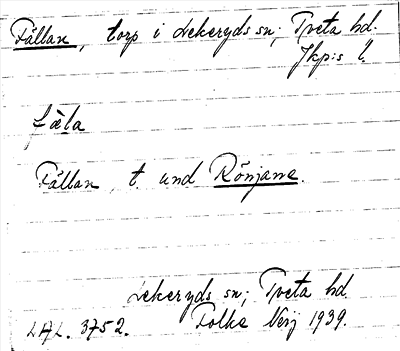 Fållan, torp i Lekeryds sn; Tveta hd.
Jkp:s l.
fåla
Fållan, t. und Rönjane.
Lekeryds sn; Tveta hd.
LAL. 3752. Folke Neij 1939.